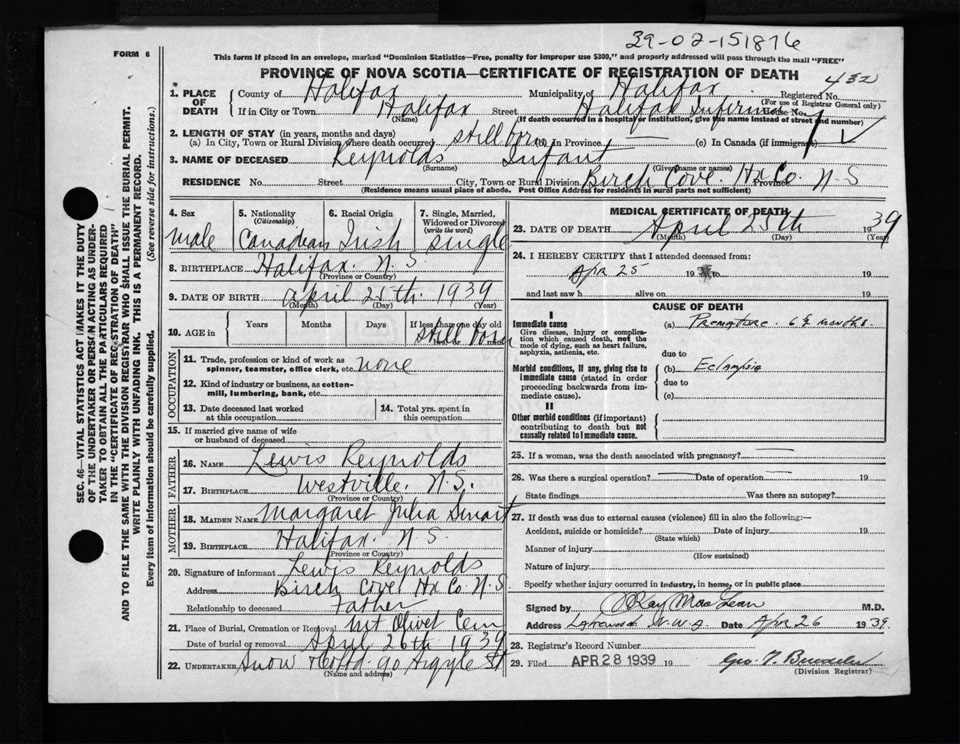 39-02-151876
FORM 6
This form if placed in an envelope, marked "Dominion Statistics—Free, penalty for improper use $300," and properly addressed will pass through the mail "FREE"
PROVINCE OF NOVA SCOTIA—CERTIFICATE OF REGISTRATION OF DEATH
432
1. PLACE OF DEATH
County of Halifax Municipality of Halifax Registered No.
(For use of Registrar General only)
If in City or Town Halifax Street Halifax Infirmary House No.
(Name) (If death occurred in a hospital or institution, give the name instead of street and number)
2. LENGTH OF STAY (in years, months and days)
(a) In City, Town or Rural Division where death occurred stillborn (b) In Province (c) In Canada (if immigrant)
3. NAME OF DECEASED Reynolds Infant
(Surname) (Given name or names)
RESIDENCE No. Street City, Town or Rural Division Birch Cove. Hx Co. Province N S
(Residence means usual place of abode. Post Office Address for residents in rural parts not sufficient)
4. Sex
male
5. Nationality
(Citizenship)
Canadian
6. Racial Origin
Irish
7. Single, Married, Widowed or Divorced
(write the word)
single
8. BIRTHPLACE Halifax. N. S
(Province or Country)
9. DATE OF BIRTH April 25th. 1939
(Month) (Day) (Year)
10. AGE in
Years Months Days If less than one day old
still born
11. Trade, profession or kind of work as
spinner, teamster, office clerk, etc. none
12. Kind of industry or business, as cotton-
mill, lumbering, bank, etc.
13. Date deceased last worked
at this occupation
14. Total yrs. spent in
this occupation
OCCUPATION
15. If married give name of wife
or husband of deceased
FATHER
16. NAME Lewis Reynolds
17. BIRTHPLACE Westville. N.S.
(Province or Country)
MOTHER
18. MAIDEN NAME Margaret Julia
19. BIRTHPLACE Halifax. N. S
(Province or Country)
20. Signature of informant Lewis Reynolds
Address Birch Cove Hx Co N.S
Relationship to deceased Father
21. Place of Burial, Cremation or Removal Mt Olivet Cem
Date of burial or removal April 26th 1939
22. UNDERTAKER Snow & Co Ltd. 90 Argyle St
(Name and address)
MEDICAL CERTIFICATE OF DEATH
23. DATE OF DEATH April 25th 1939
(Month) (Day) (Year)
24. I HEREBY CERTIFY that I attended deceased from:
Apr 25 19 to 19
and last saw h alive on 19
CAUSE OF DEATH
I
Immediate cause
Give disease, injury or complica-
tion which caused death, not the
mode of dying, such as heart failure,
asphyxia, asthenia, etc.
(a) Premature. 6½ months.
due to
Morbid conditions, if any, giving rise to
immediate cause (stated in order
proceeding backwards from im-
mediate cause).
(b) Eclampsia
due to
(c)
II
Other morbid conditions (if important)
contributing to death but not
causally related to immediate cause.
25. If a woman, was the death associated with pregnancy?
26. Was there a surgical operation? Date of operation 19
State findings Was there an autopsy?
27. If death was due to external causes (violence) fill in also the following:—
Accident, suicide or homicide? Date of injury 19
(State which)
Manner of injury
(How sustained)
Nature of injury
Specify whether injury occurred in industry, in home, or in public place
Signed by Kay MacLean M.D.
Address Date Apr 26 1939.
28. Registrar's Record Number
29. Filed APR 28 1939 19
(Division Registrar)
SEC. 46—VITAL STATISTICS ACT MAKES IT THE DUTY
OF THE UNDERTAKER OR PERSON ACTING AS UNDER-
TAKER TO OBTAIN ALL THE PARTICULARS REQUIRED
IN THE "CERTIFICATE OF REGISTRATION OF DEATH"
AND TO FILE THE SAME WITH THE DIVISION REGISTRAR WHO SHALL ISSUE THE BURIAL PERMIT.
WRITE PLAINLY WITH UNFADING INK. THIS IS A PERMANENT RECORD.
Every item of information should be carefully supplied. (See reverse side for instructions.)